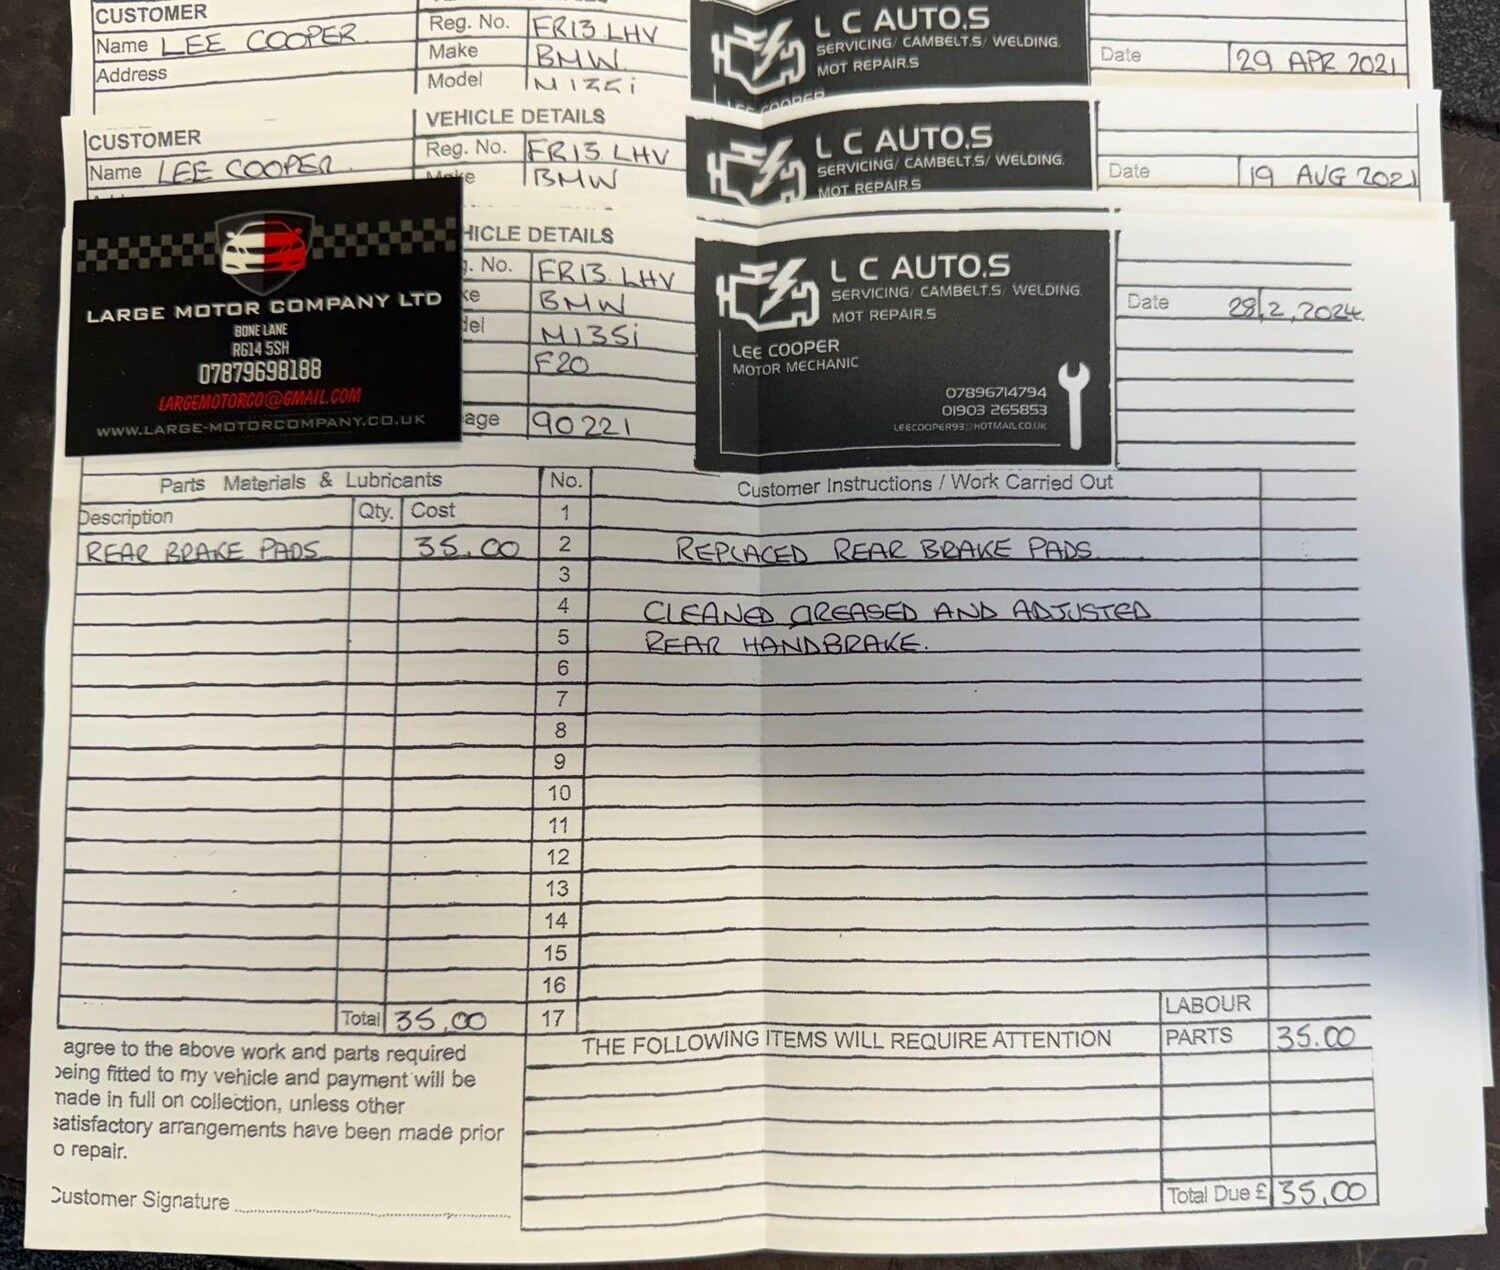 CUSTOMER
Name LEE COOPER
Address
Reg. No. FR13 LHV
Make BMW
Model M135i
L C AUTO.S
SERVICING/ CAMBELT.S/ WELDING.
MOT REPAIR.S
LEE COOPER
Date 29 APR 2021
CUSTOMER
Name LEE COOPER
VEHICLE DETAILS
Reg. No. FR13 LHV
Make BMW
L C AUTO.S
SERVICING/ CAMBELT.S/ WELDING.
MOT REPAIR.S
Date 19 AUG 2021
LARGE MOTOR COMPANY LTD
BONE LANE
RG14 5SH
07879698188
LARGEMOTORCO@GMAIL.COM
WWW.LARGE-MOTORCOMPANY.CO.UK
HICLE DETAILS
g. No. FR13 LHV
ke BMW
del M135i
F20
age 90221
L C AUTO.S
SERVICING/ CAMBELT.S/ WELDING.
MOT REPAIR.S
LEE COOPER
MOTOR MECHANIC
07896714794
01903 265853
LEECOOPER93@HOTMAIL.CO.UK
Date 28,2,2024
Parts Materials & Lubricants No. Customer Instructions / Work Carried Out
Description Qty. Cost 1
REAR BRAKE PADS 35.00 2 REPLACED REAR BRAKE PADS
3
4 CLEANED GREASED AND ADJUSTED
5 REAR HANDBRAKE.
6
7
8
9
10
11
12
13
14
15
16
Total 35,00 17
LABOUR
THE FOLLOWING ITEMS WILL REQUIRE ATTENTION PARTS 35.00
agree to the above work and parts required
being fitted to my vehicle and payment will be
made in full on collection, unless other
satisfactory arrangements have been made prior
o repair.
Customer Signature
Total Due £ 35,00